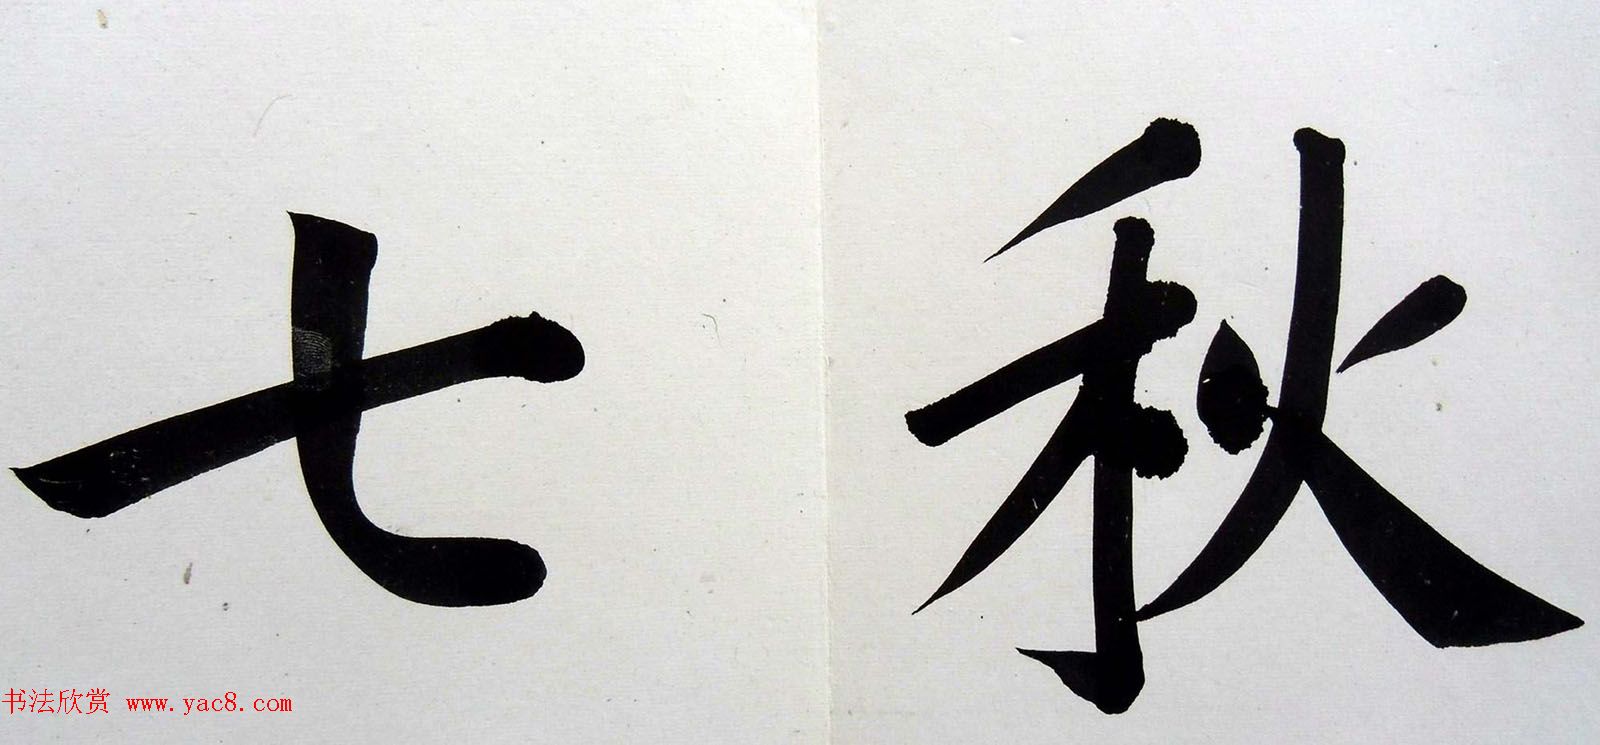 秋七
书法欣赏 www.yac8.com